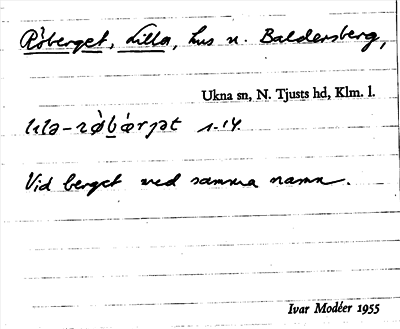 Röberget, Lilla, hus u. Baldersberg,
Ukna sn, N. Tjusts hd, Klm. l.
1.14.
Vid berget med samma namn.
Ivar Modéer 1955